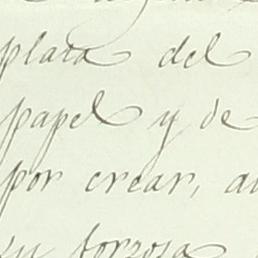 plata del
papel y de
por crear, a
su forzosa